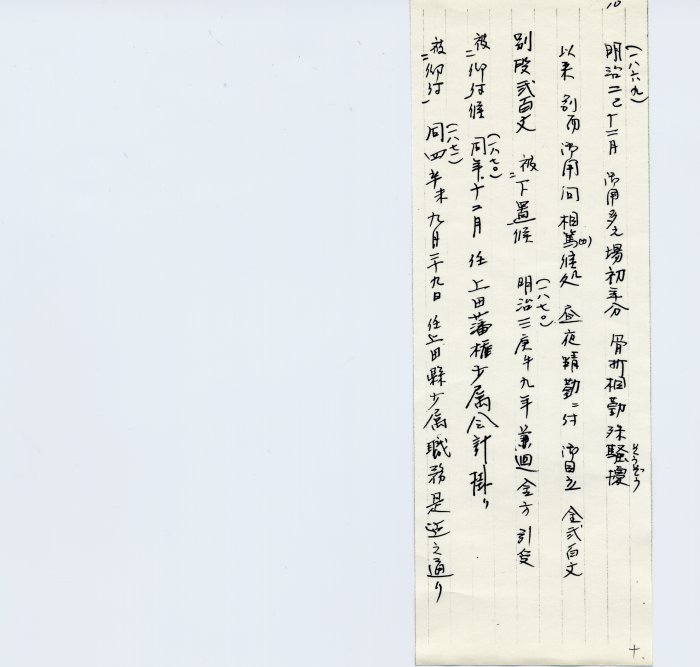 10
(一八六九)
明治二己十二月 御用多之場初年分 骨折相勤殊騒擾
そうぜう
以来 別而御用向相篤候処 昼夜精勤ニ付 御目立 金弐百文
別段弐百文 被下置候 明治三庚午九年 兼廻金方 引受
(一八七〇)
被仰付候 同年十二月 任 上田藩権少属会計掛り
(一八七〇)
被仰付 同四辛未九月二十九日 任上田縣少属職務是迄之通り
(一八七一)
十